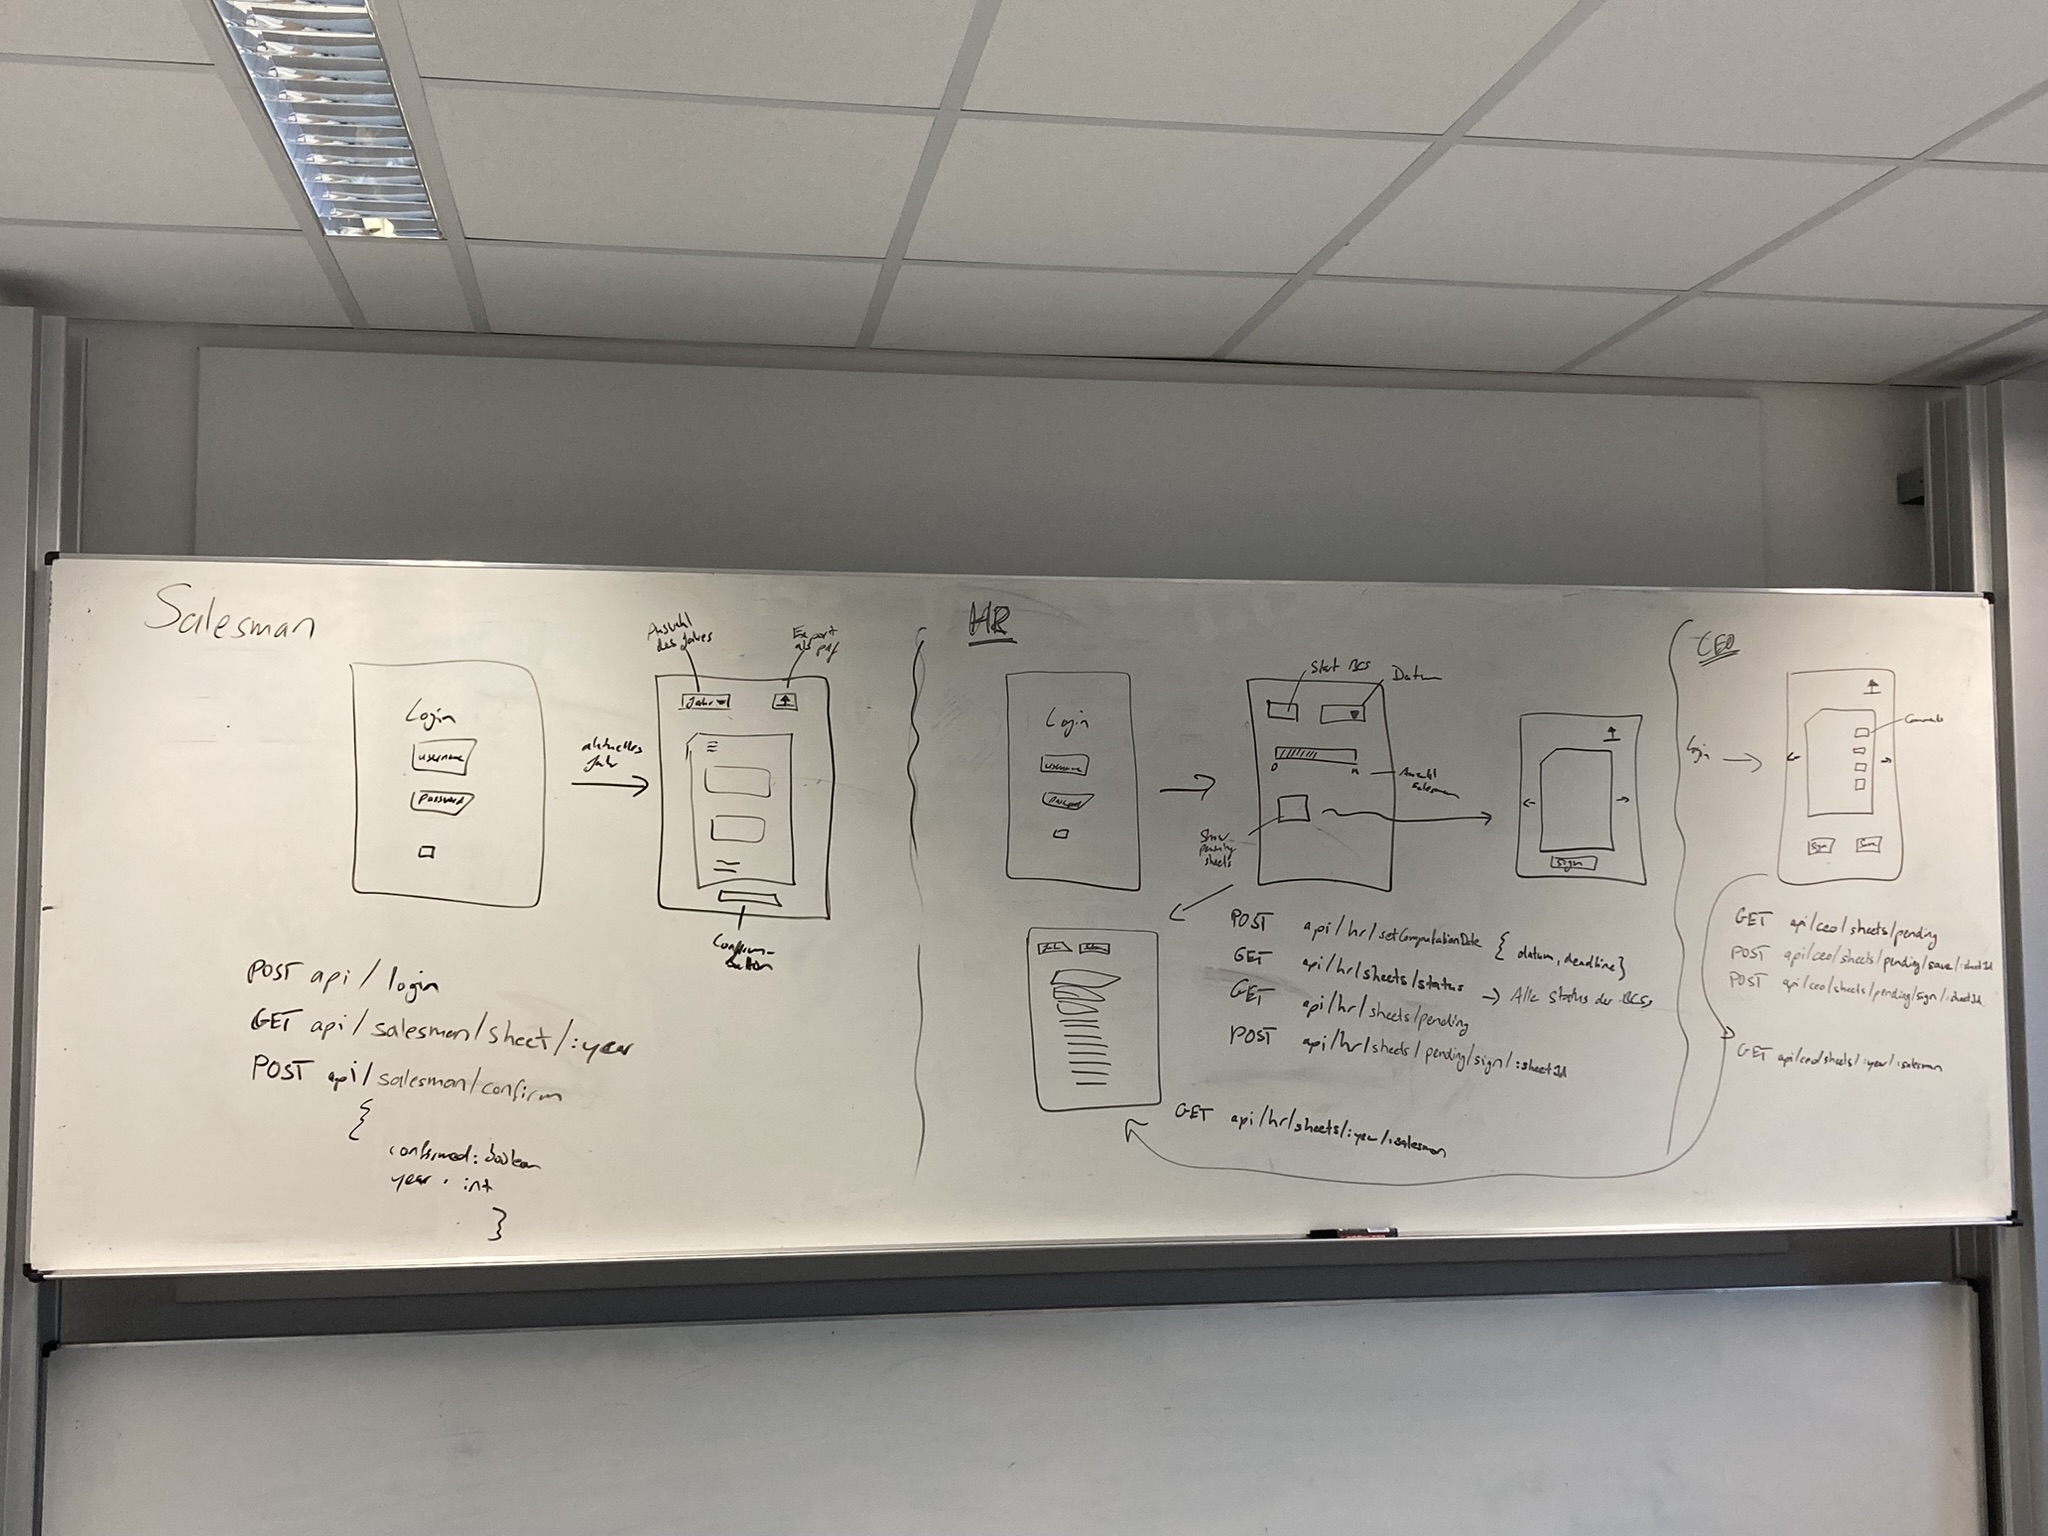 Salesman
Auswahl
des Jahres
Export
als pdf
Jahr
Login
username
Password
aktuelles
Jahr
Confirm-
button
POST api / login
GET api / salesman / sheet / :year
POST api / salesman / confirm
{
confirmed: boolean
year : int
}
HR
Login
username
Start BCS
Datum
0
n
Anzahl
Salesmen
Show
pending
sheets
sign
POST api / hr / setComputationDate { datum, deadline }
GET api / hr / sheets / status → Alle Status der BCSs
GET api / hr / sheets / pending
POST api / hr / sheets / pending / sign / :sheetId
GET api / hr / sheets / :year / :salesman
CEO
Login
Sign
Save
GET api / ceo / sheets / pending
POST api / ceo / sheets / pending / save / :sheetId
POST api / ceo / sheets / pending / sign / :sheetId
GET api / ceo / sheets / :year / :salesman